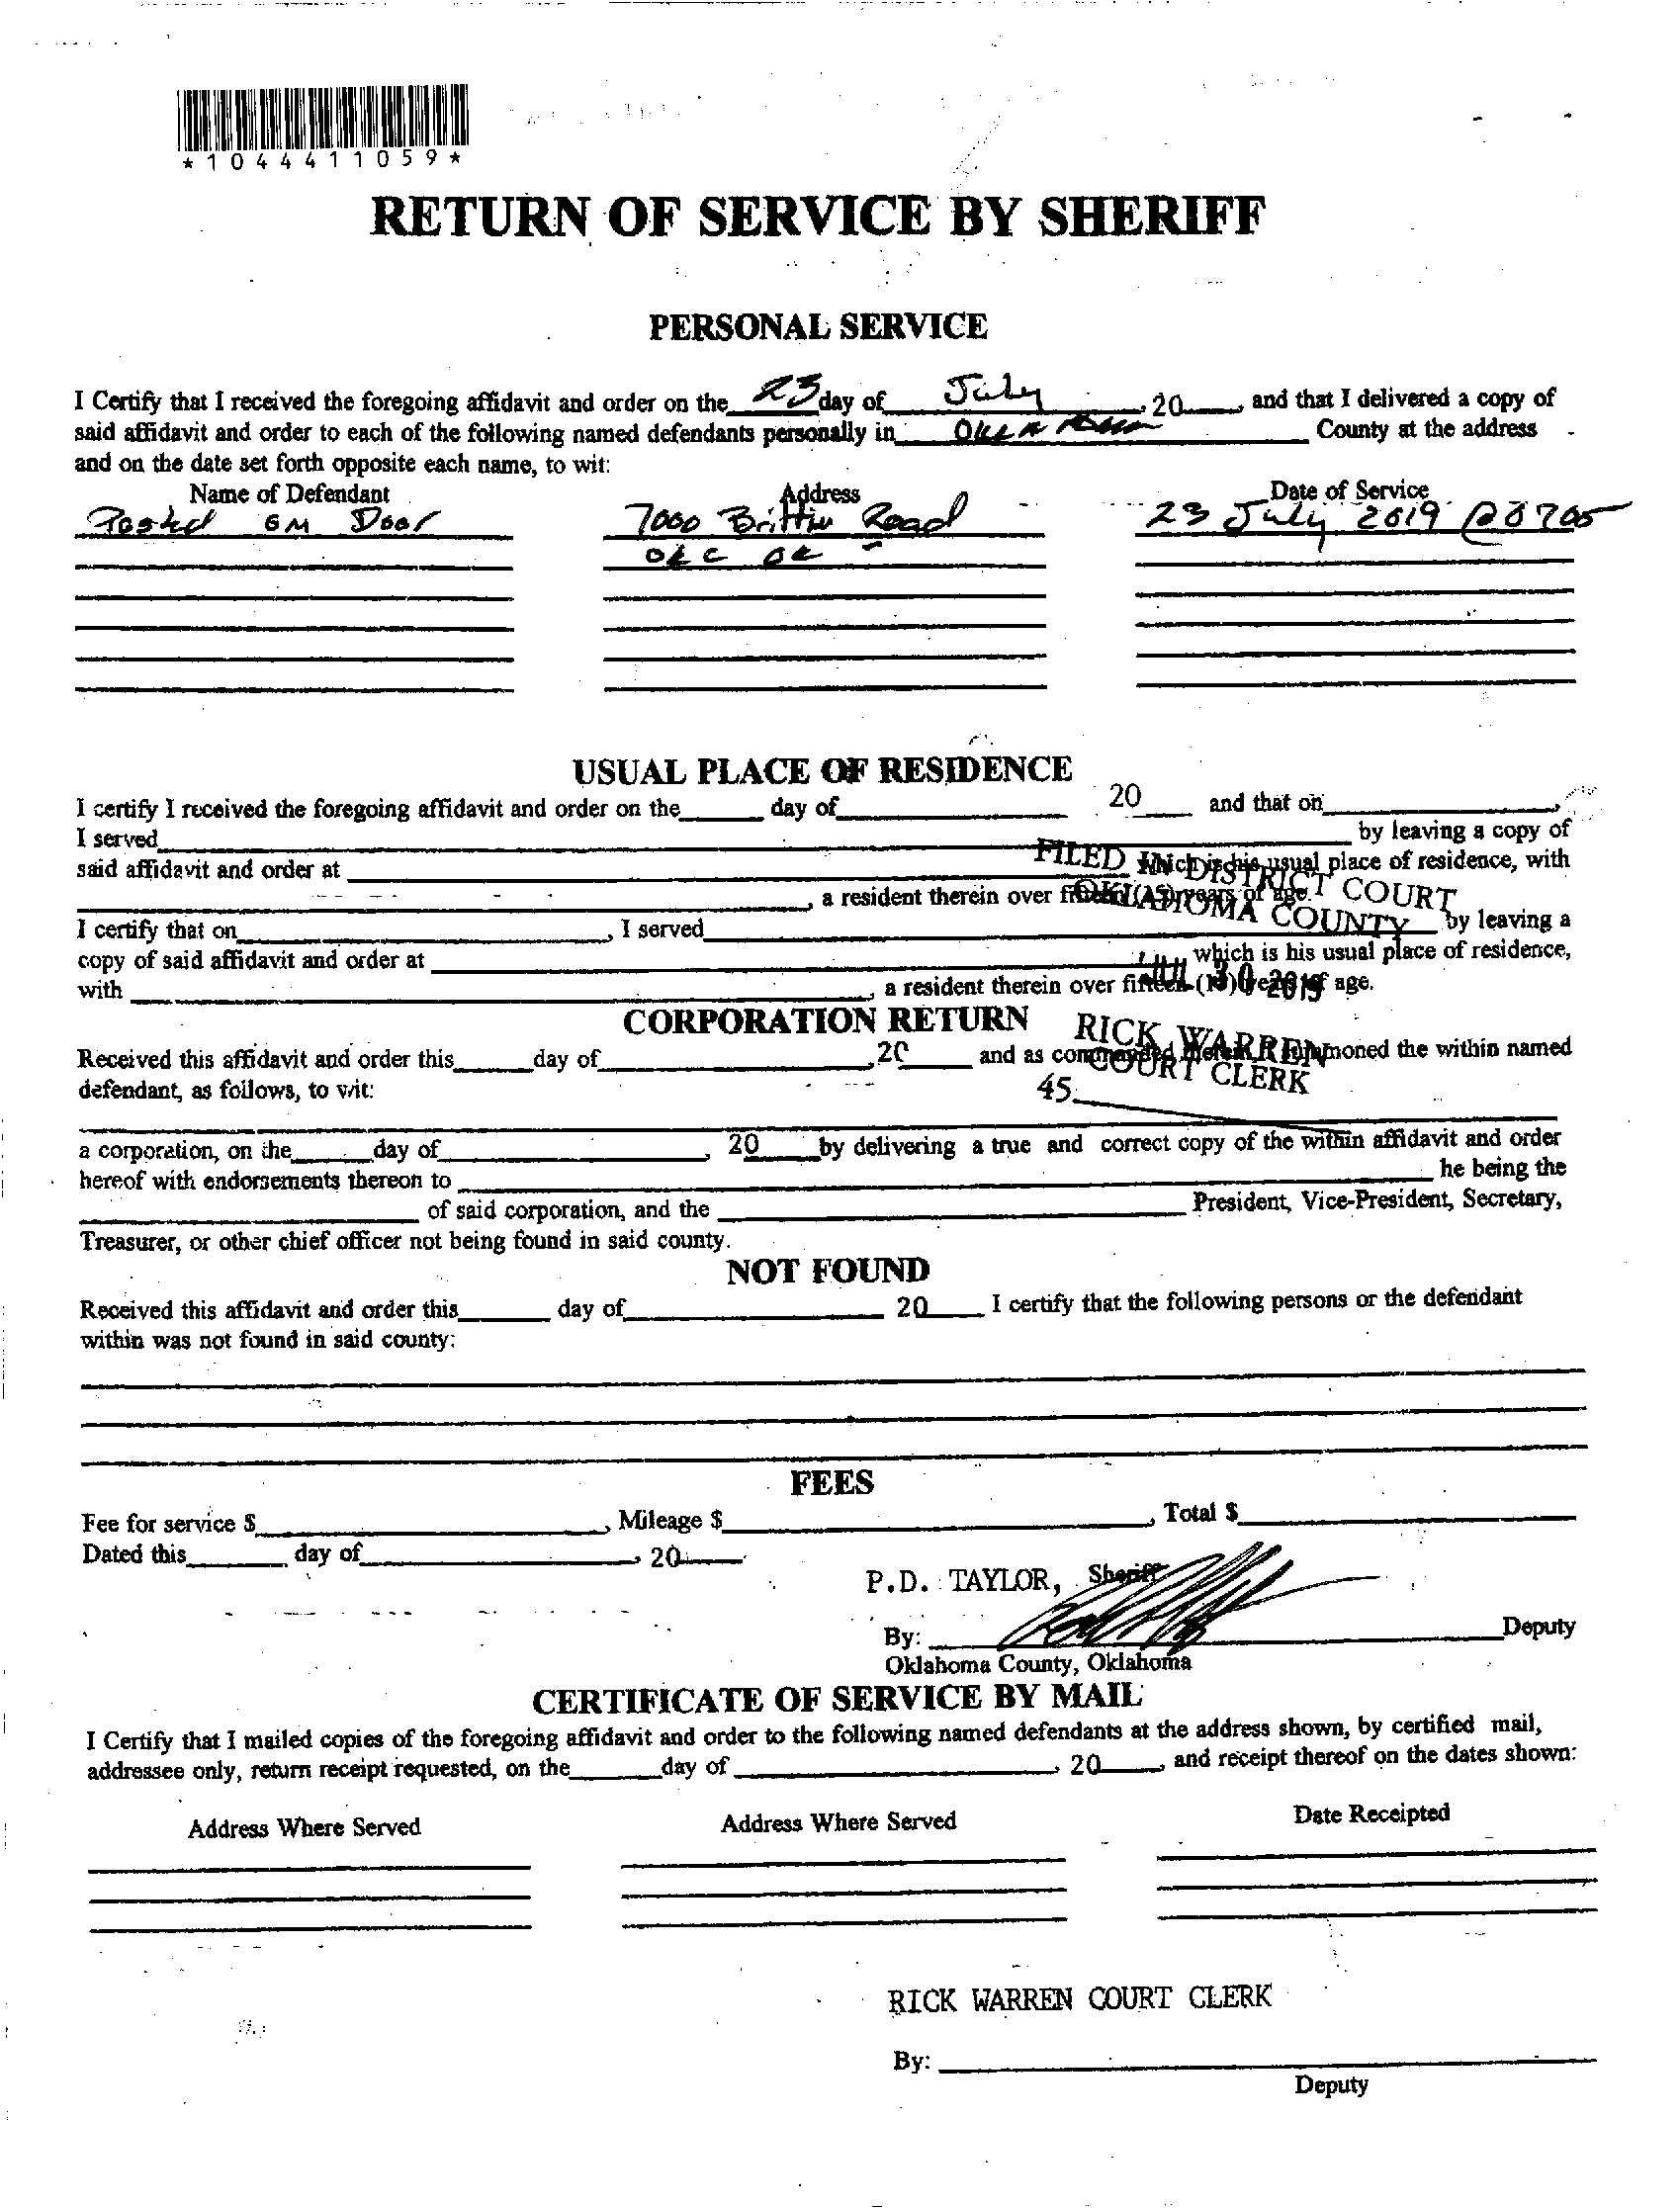 *1044411059*
RETURN OF SERVICE BY SHERIFF
PERSONAL SERVICE
I Certify that I received the foregoing affidavit and order on the 23 day of July, 20____, and that I delivered a copy of
said affidavit and order to each of the following named defendants personally in County at the address
and on the date set forth opposite each name, to wit:
Name of Defendant Address Date of Service
Posted Door 7000 Road 23 July 2019 @ 0705
OKC OK
USUAL PLACE OF RESIDENCE
I certify I received the foregoing affidavit and order on the______ day of______ 20____ and that on______,
I served______ by leaving a copy of
said affidavit and order at ______ which is his usual place of residence, with
______, a resident therein over fifteen (15) years of age.
FILED IN DISTRICT COURT
OKLAHOMA COUNTY
I certify that on______, I served______ by leaving a
copy of said affidavit and order at ______ which is his usual place of residence,
with ______, a resident therein over fifteen (15) years of age.
JUL 30 2019
CORPORATION RETURN
RICK WARREN
COURT CLERK
Received this affidavit and order this______day of______,20____ and as commanded therein, I summoned the within named
defendant, as follows, to wit:
45______
a corporation, on the______day of______, 20____by delivering a true and correct copy of the within affidavit and order
hereof with endorsements thereon to ______ he being the
______ of said corporation, and the ______ President, Vice-President, Secretary,
Treasurer, or other chief officer not being found in said county.
NOT FOUND
Received this affidavit and order this______ day of______ 20____ I certify that the following persons or the defendant
within was not found in said county:
FEES
Fee for service $______, Mileage $______, Total $______
Dated this______ day of______, 20____
P.D. TAYLOR, Sheriff
By: ______Deputy
Oklahoma County, Oklahoma
CERTIFICATE OF SERVICE BY MAIL
I Certify that I mailed copies of the foregoing affidavit and order to the following named defendants at the address shown, by certified mail,
addressee only, return receipt requested, on the______day of ______, 20____, and receipt thereof on the dates shown:
Address Where Served Address Where Served Date Receipted
RICK WARREN COURT CLERK
By: ______
Deputy